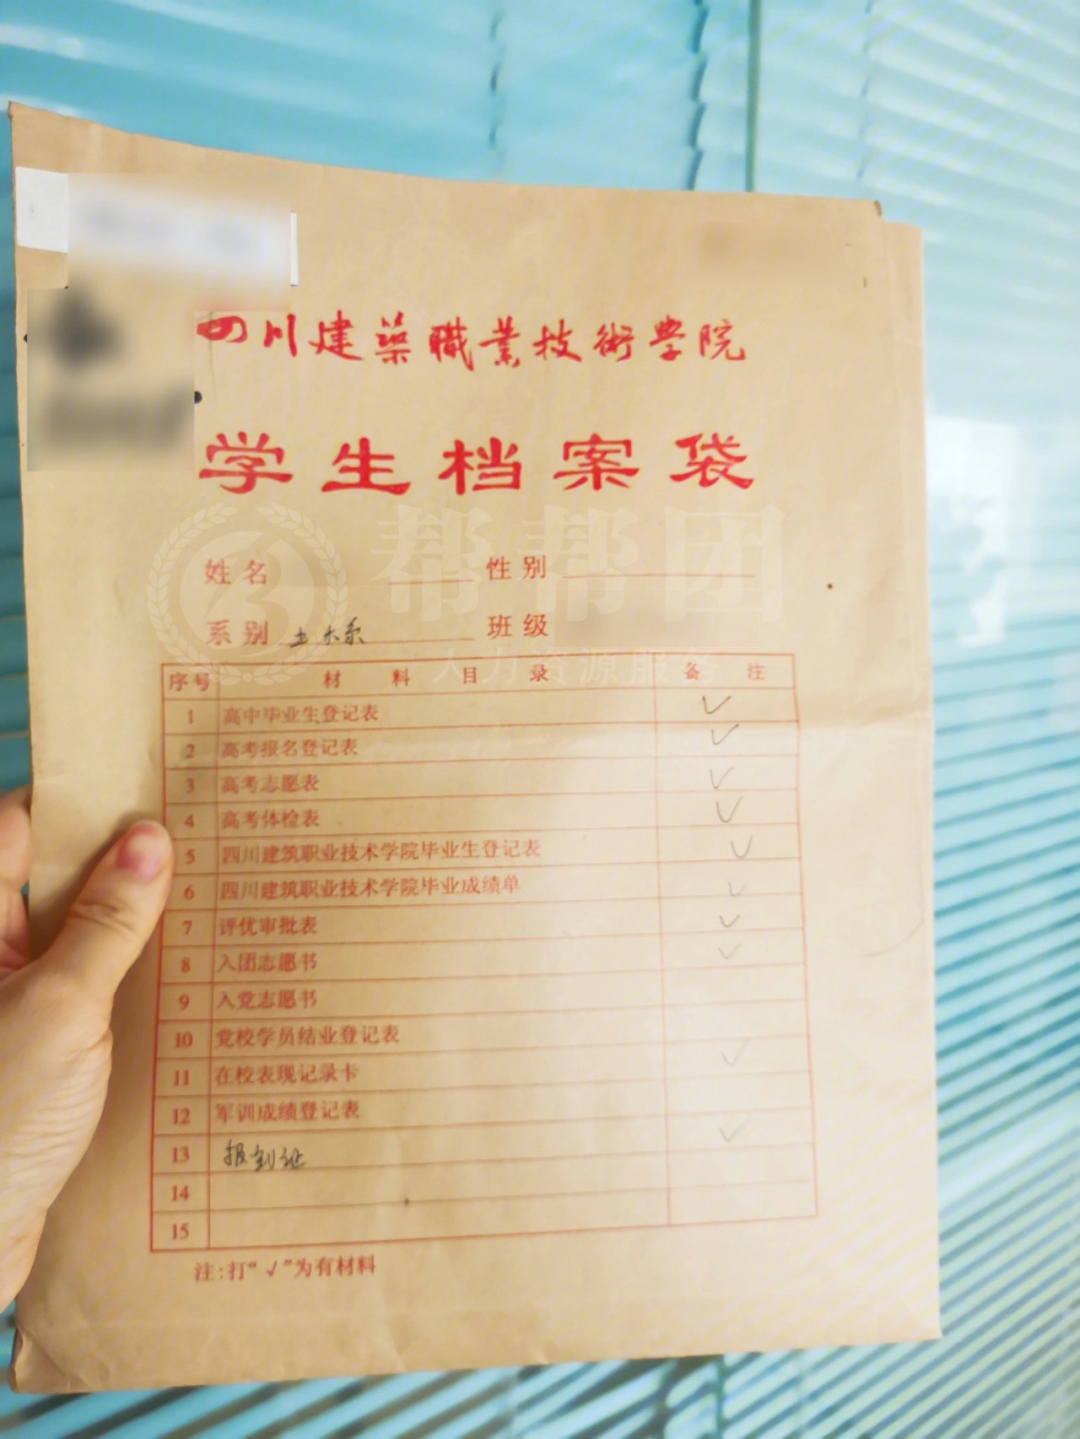 四川建築職業技術學院
学生档案袋
帮帮团
人力资源服务
姓名 性别
系别 土木系 班级
序号 材料目录 备注
1 高中毕业生登记表 ✓
2 高考报名登记表 ✓
3 高考志愿表 ✓
4 高考体检表 ✓
5 四川建筑职业技术学院毕业生登记表 ✓
6 四川建筑职业技术学院毕业成绩单 ✓
7 评优审批表 ✓
8 入团志愿书 ✓
9 入党志愿书
10 党校学员结业登记表
11 在校表现记录卡 ✓
12 军训成绩登记表
13 报到证 ✓
14
15
注:打“√”为有材料